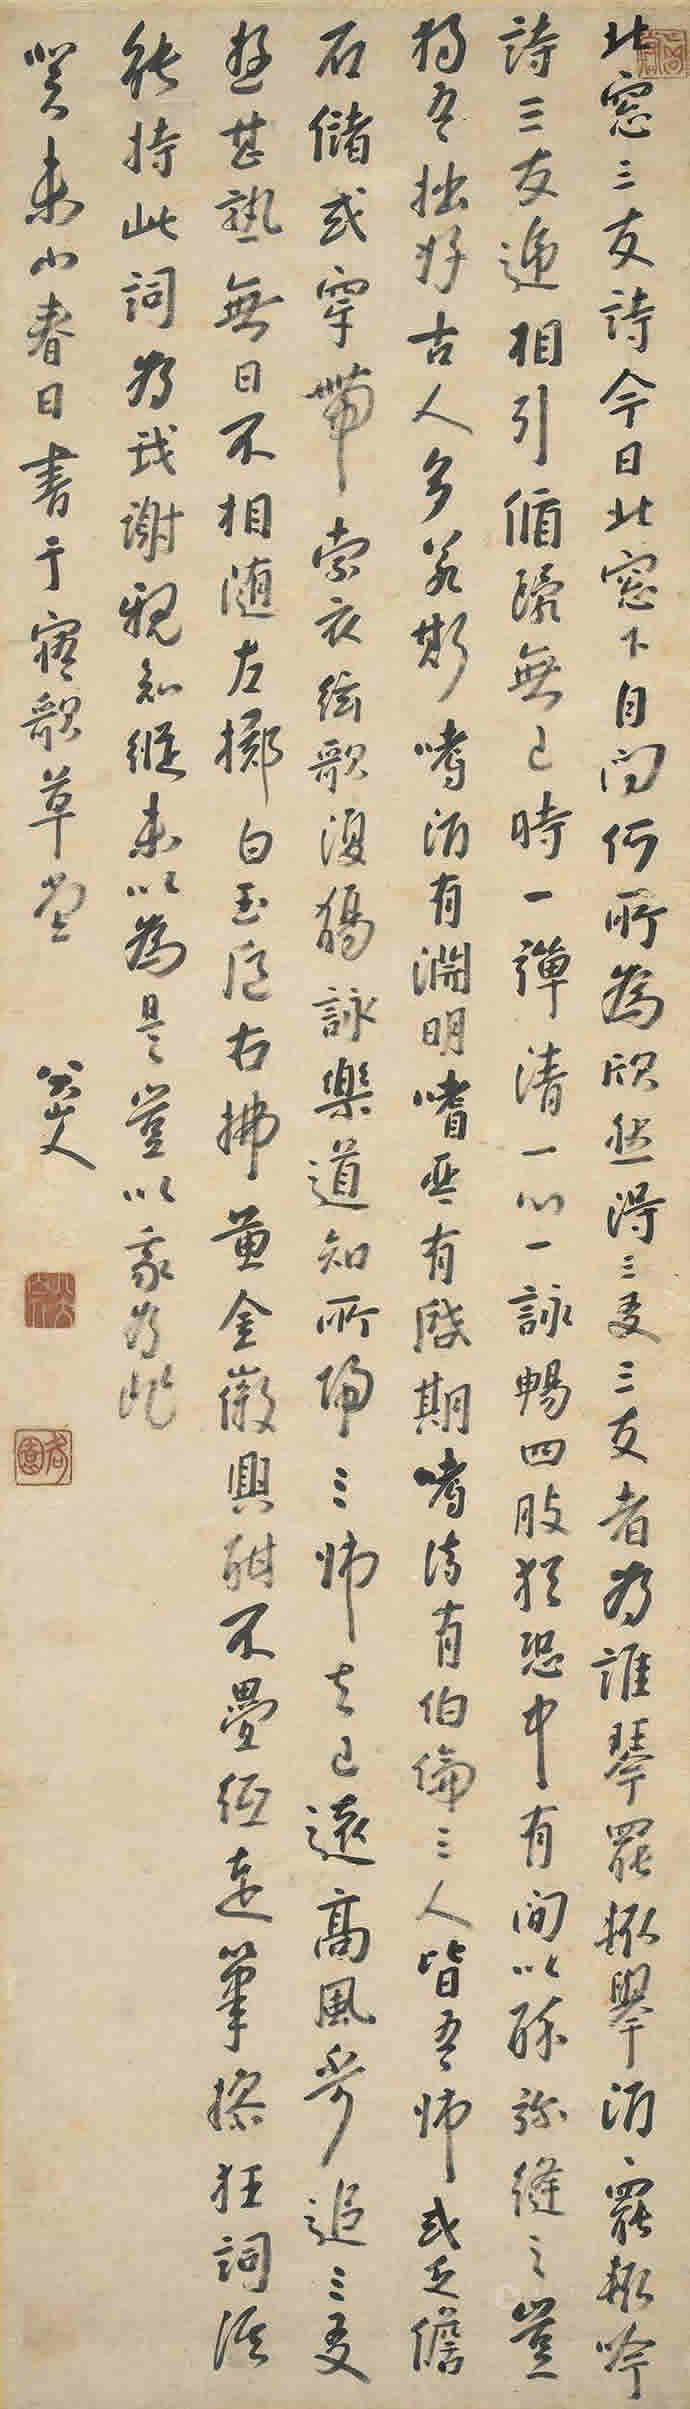 北窓三友詩今日北窓下自问何所為欣然得三友三友者为誰琴罷輙舉酒罷輙吟
詩三友遞相引循環無已時一彈清一心一詠暢四肢猶恐中有间以酔弥縫之豈
獨吾拙好古人多若斯嗜酒有淵明嗜琴有啟期嗜诗有伯倫三人皆吾师或乏儋
石儲或穿帶索衣絃歌復觴詠樂道知所归三师去已遠高風不可追三友
逰甚熟無日不相随左擲白玉卮右拂黄金徽興酣不疊纸走筆操狂詞谁
能持此詞为我謝親知縦未以為是豈以我为非
癸未小春日書于寤歌草堂
八大山人